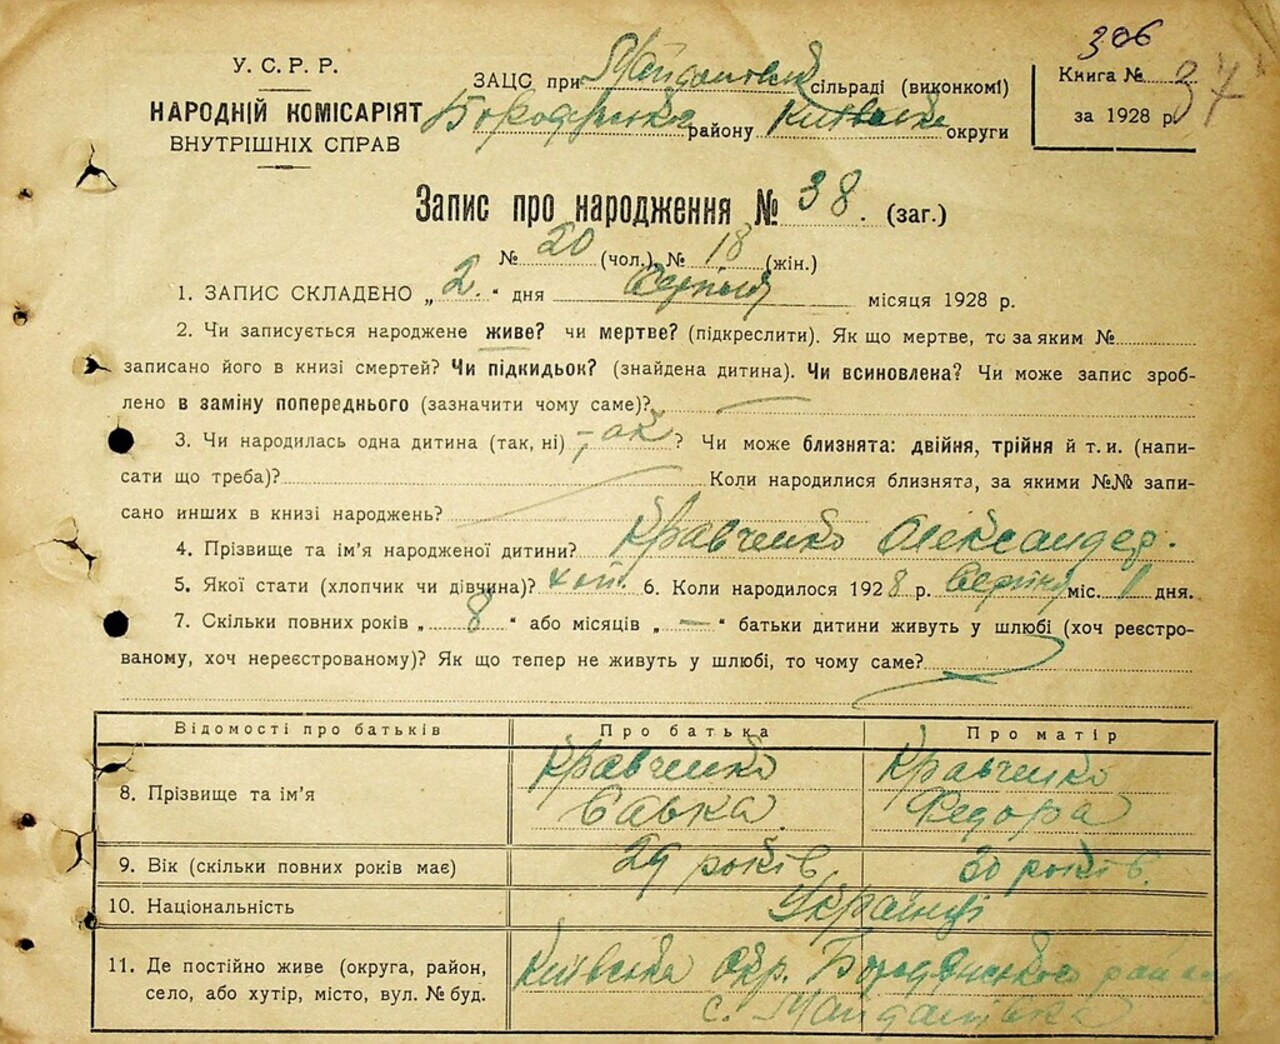 306
У. С. Р. Р.
НАРОДНІЙ КОМІСАРІЯТ
ВНУТРІШНІХ СПРАВ
ЗАЦС при Майданівській сільраді (виконкомі)
Бородянського району Київської округи
Книга № 37
за 1928 р.
Запис про народження № 38. (заг.)
№ 20 (чол.), № 18 (жін.)
1. ЗАПИС СКЛАДЕНО „ 2. “ дня Серпня місяця 1928 р.
2. Чи записується народжене живе? чи мертве? (підкреслити). Як що мертве, то за яким №
записано його в книзі смертей? Чи підкидьок? (знайдена дитина). Чи всиновлена? Чи може запис зроб-
лено в заміну попереднього (зазначити чому саме)?
3. Чи народилась одна дитина (так, ні) так ? Чи може близнята: двійня, трійня й т. и. (напи-
сати що треба)? Коли народилися близнята, за якими №№ запи-
сано инших в книзі народжень?
4. Прізвище та ім’я народженої дитини? Кравченко Олександер.
5. Якої стати (хлопчик чи дівчина)? хоп. 6. Коли народилося 1928 р. Серпня міс. 1 дня.
7. Скільки повних років „ 8 “ або місяців „ — “ батьки дитини живуть у шлюбі (хоч реєстро-
ваному, хоч нереєстрованому)? Як що тепер не живуть у шлюбі, то чому саме?
Відомості про батьків Про батька Про матір
8. Прізвище та ім’я Кравченко Савка. Кравченко Федора
9. Вік (скільки повних років має) 29 років 30 років.
10. Національність Українці
11. Де постійно живе (округа, район, Київська Окр. Бородянського району
село, або хутір, місто, вул. № буд. с. Майданівка